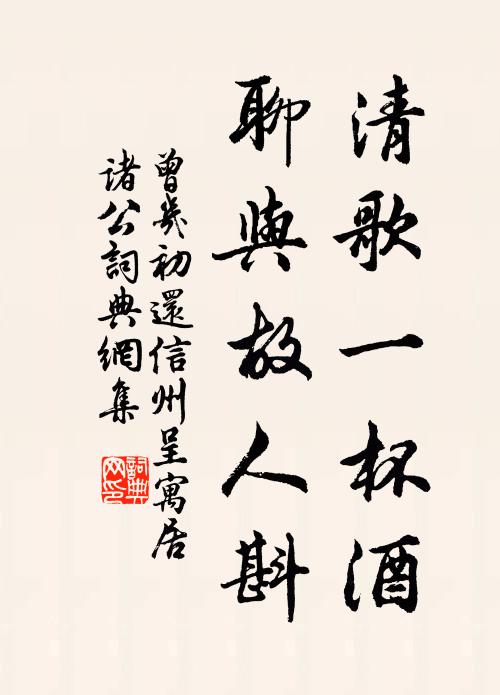 清歌一杯酒
聊與故人斟
曾幾初還信州呈寓居
諸公詞典網集
詞典
网印